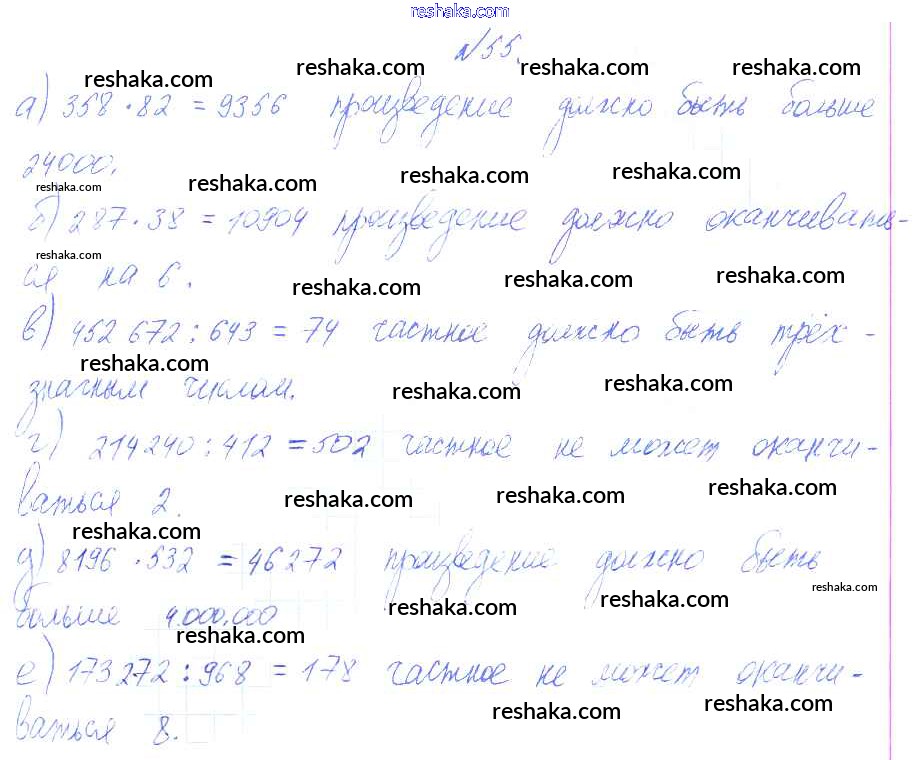 reshaka.com
№55.
reshaka.com reshaka.com reshaka.com reshaka.com
а) 358 · 82 = 9356 произведение должно быть больше
24000.
reshaka.com reshaka.com reshaka.com reshaka.com
б) 287 · 38 = 10904 произведение должно оканчивать-
reshaka.com
ся на 6.
reshaka.com reshaka.com reshaka.com
в) 452 672 : 643 = 74 частное должно быть трёх-
reshaka.com
значным числом.
reshaka.com reshaka.com
г) 214240 : 412 = 502 частное не может оканчи-
ваться 2.
reshaka.com reshaka.com reshaka.com
reshaka.com
д) 8196 · 532 = 46272 произведение должно быть
reshaka.com
больше 4.000.000
reshaka.com reshaka.com
reshaka.com
е) 173272 : 968 = 178 частное не может оканчи-
ваться 8.
reshaka.com reshaka.com